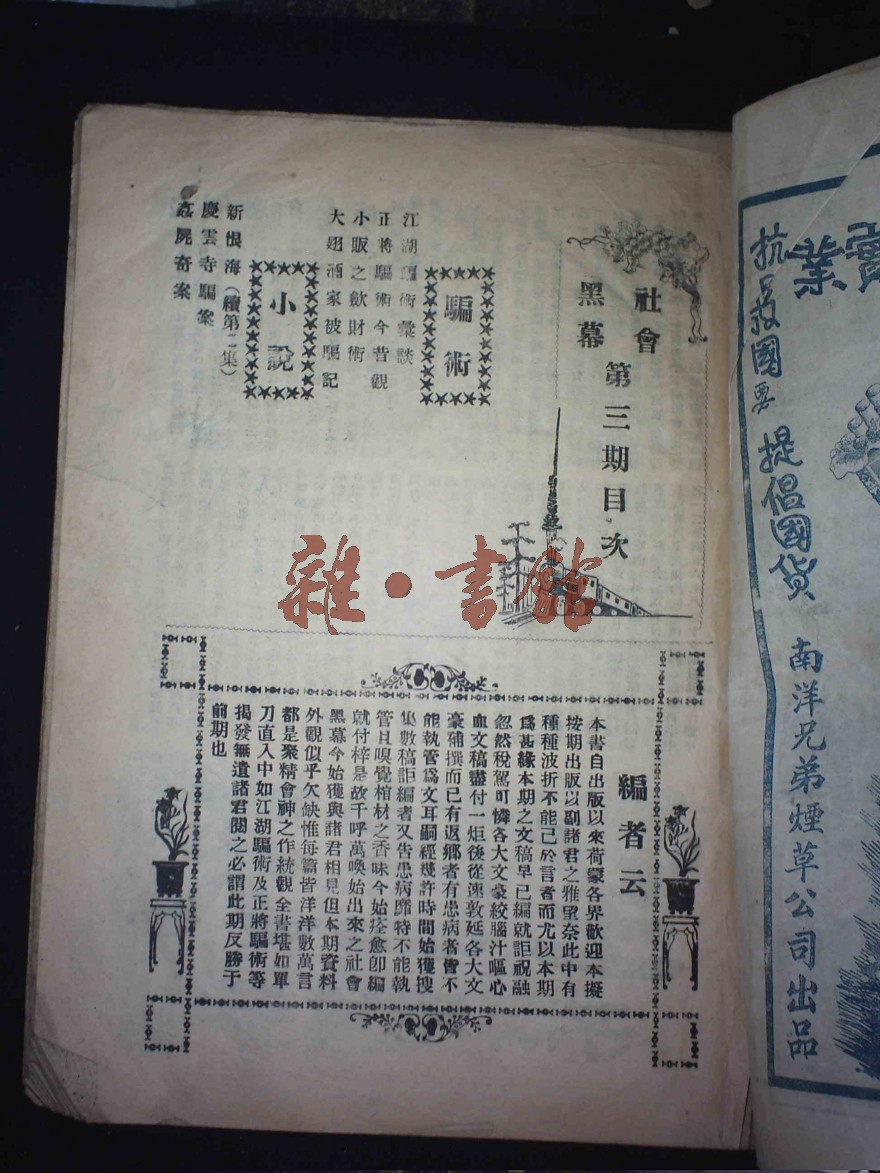 社會
黑幕
第三期目次
騙術
江湖騙術彙談
正將騙術今昔觀
小販之歛財術
大翅酒家被騙記
小說
新恨海（續第二集）
慶雲寺騙案
姦屍奇案
編者云
本書自出版以來荷蒙各界歡迎本擬
按期出版以副諸君之雅望奈此中有
種種波折不能已於言者而尤以本期
爲甚緣本期之文稿早已編就詎祝融
忽然稅駕可憐各大文豪絞腦汁嘔心
血文稿盡付一炬後從澳敦延各大文
豪補撰而已有返鄉者有患病者皆不
能執管爲文耳嗣經幾許時間始獲搜
集數稿詎編者又告患病靡特不能執
管且嗅覺棺材之香味今始痊愈卽編
就付梓是故千呼萬喚始出來之社會
黑幕今始獲與諸君相見但本期資料
外觀似乎欠缺惟每篇皆洋洋數萬言
都是聚精會神之作統觀全書堪如單
刀直入中如江湖騙術及正將騙術等
揭發無遺諸君閱之必謂此期反勝于
前期也
雜·書館
實業
救國
要
提倡國貨
南洋兄弟煙草公司出品